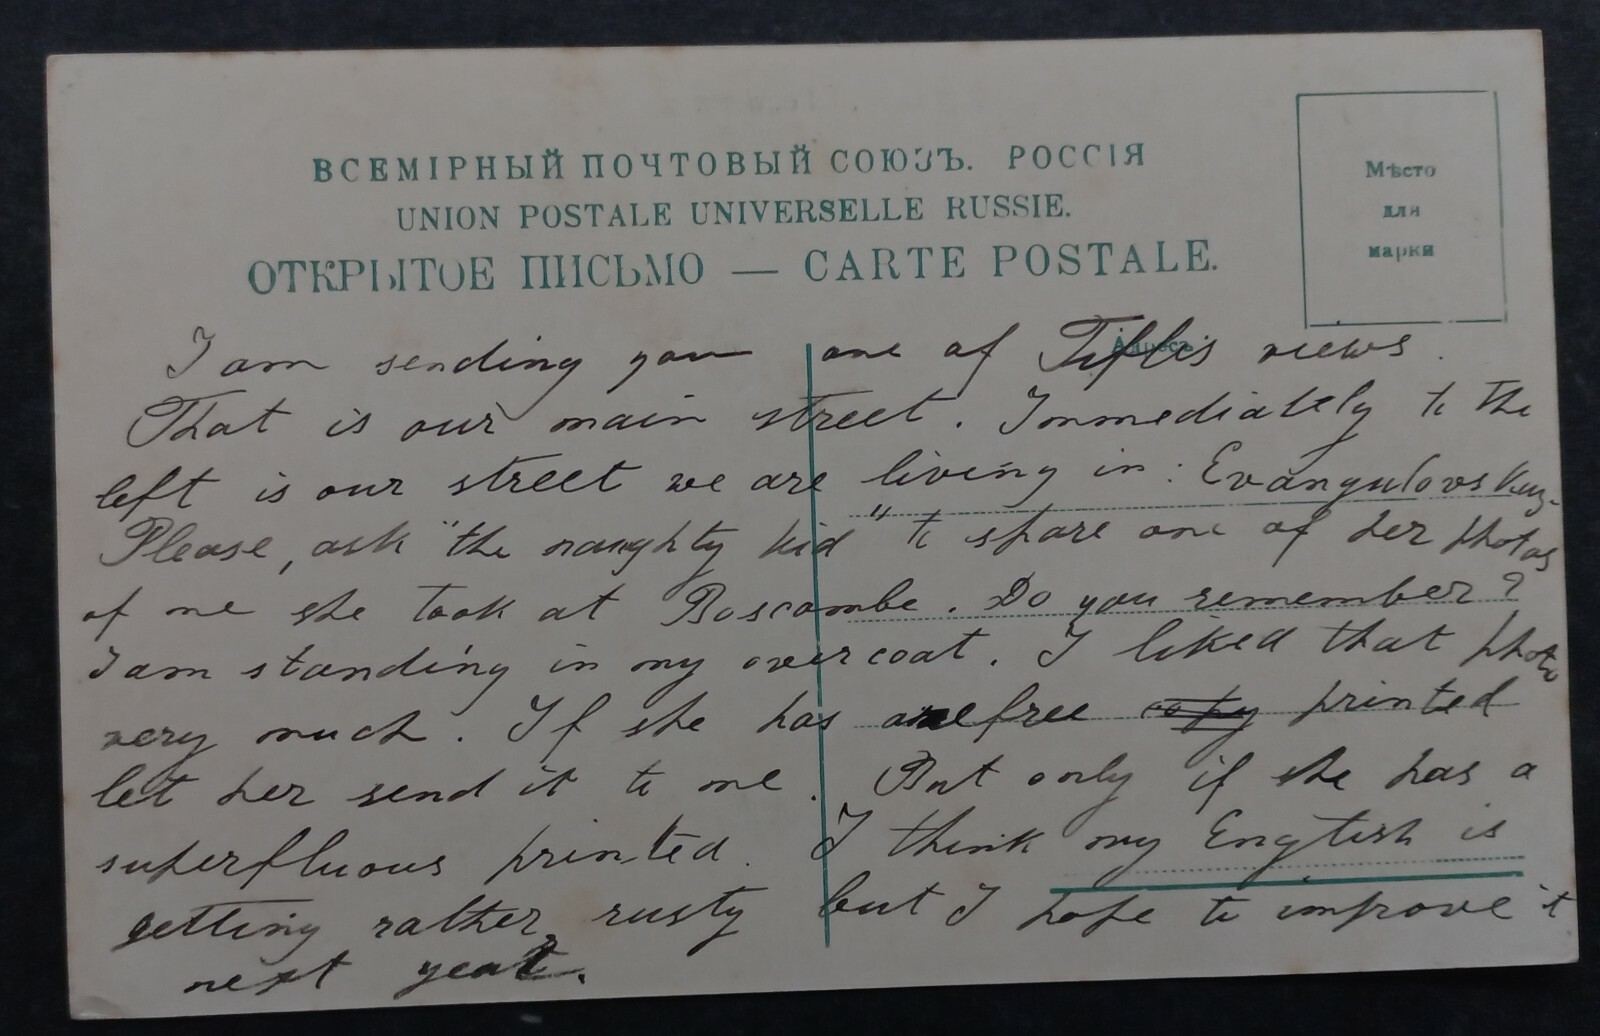 ВСЕМІРНЫЙ ПОЧТОВЫЙ СОЮЗЪ. РОССІЯ
UNION POSTALE UNIVERSELLE RUSSIE.
ОТКРЫТОЕ ПИСЬМО — CARTE POSTALE.
Мѣсто
для
марки
Адресъ
I am sending you one of Tiflis views.
That is our main street. Immediately to the
left is our street we are living in: Evangulovskaj-
Please, ask "the naughty kid" to spare one of her photos
of me she took at Boscombe. Do you remember?
I am standing in my overcoat. I liked that photo
very much. If she has one free copy printed
let her send it to me. But only if she has a
superfluous printed. I think my English is
getting rather rusty but I hope to improve it
next year.